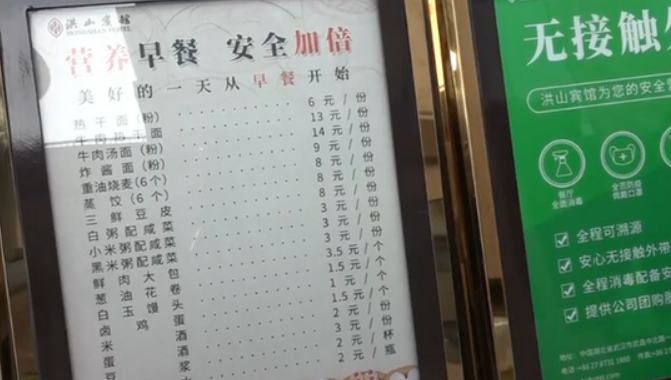 洪山賓館
HONGSHAN HOTEL
营养早餐 安全加倍
美好的一天从早餐开始
热干面(粉) 6元/份
牛肉热干面 13元/份
牛肉汤面(粉) 14元/份
炸酱面(粉) 9元/份
重油烧麦(6个) 8元/份
蒸饺(6个) 8元/份
三鲜豆皮 8元/份
白粥配咸菜 3元/份
小米粥配咸菜 3元/份
黑米粥配咸菜 3元/份
鲜肉大包 3.5元/个
葱油花卷 1.5元/个
白玉馒头 1元/个
卤鸡蛋 1.5元/个
米酒 2元/份
蛋酒 3元/份
豆浆 2元/杯
2元/瓶
无接触
洪山宾馆为您的安全
餐厅
全面消毒
全员防疫
佩戴口罩
全程可溯源
安心无接触外带
全程消毒配备安
提供公司团购